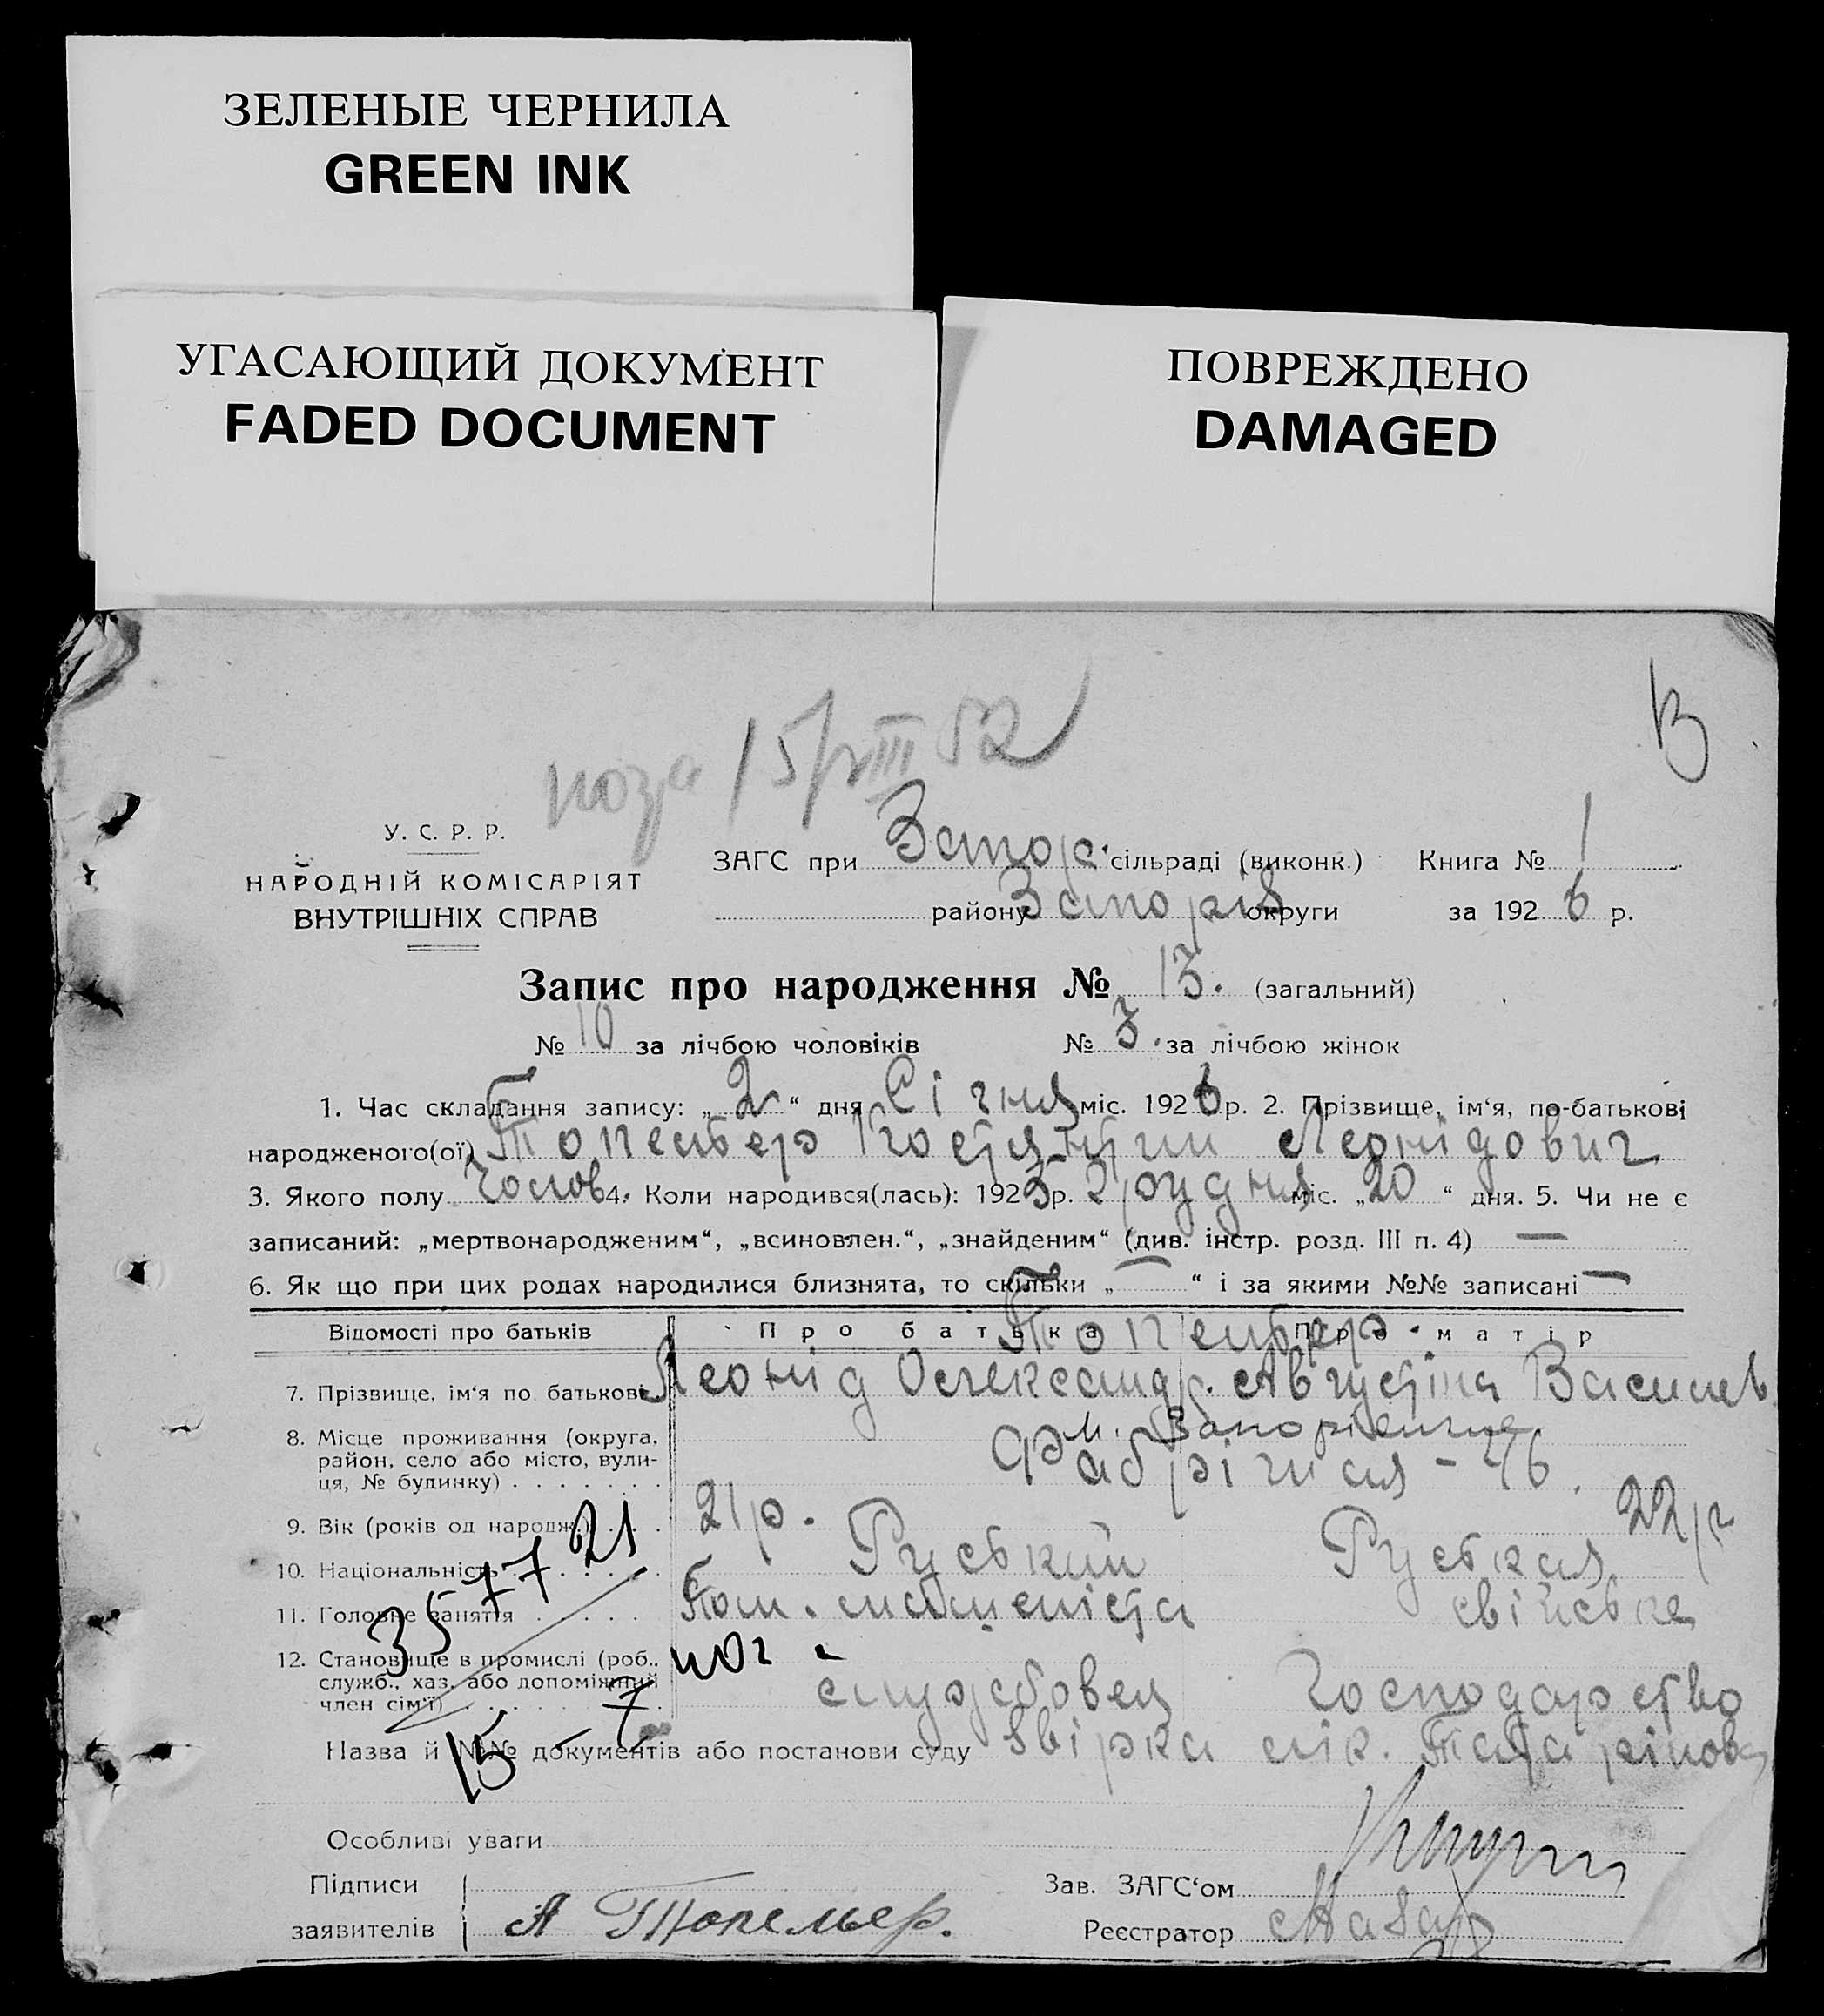 ЗЕЛЕНЫЕ ЧЕРНИЛА
GREEN INK
УГАСАЮЩИЙ ДОКУМЕНТ
FADED DOCUMENT
ПОВРЕЖДЕНО
DAMAGED
В
У. С. Р. Р.
НАРОДНІЙ КОМІСАРІЯТ
ВНУТРІШНІХ СПРАВ
ЗАГС при Запор. сільраді (виконк.) Книга № 1
району Запоріз округи за 1926 р.
Запис про народження № 13. (загальний)
№ 10 за лічбою чоловіків № 3. за лічбою жінок
1. Час складання запису: „2“ дня Січня міс. 1926 р. 2. Прізвище, ім‘я, по-батькові
народженого(ої) Топельбер Костянтин Леонідович
3. Якого полу Чолов 4. Коли народився(лась): 1925 р. Грудня міс. „20“ дня. 5. Чи не є
записаний: „мертвонародженим“, „всиновлен.“, „знайденим“ (див. інстр. розд. III п. 4) —
6. Як що при цих родах народилися близнята, то скільки „—“ і за якими №№ записані —
Відомості про батьків Про батька Про матір
7. Прізвище, ім‘я по батькові Леонід Олександр. Августіна Василів
8. Місце проживання (округа,
район, село або місто, вули-
ця, № будинку)
м. Запоріжжє
Фабрічная - 46.
9. Вік (років од народж.) 21 р. 22 р
10. Національність Руський Руская
11. Головне заняття Пом. машиніста свійське
12. Становище в промислі (роб.,
служб., хаз. або допоміжний
член сім‘ї)
службовец Господарство
Назва й №№ документів або постанови суду Звірка лік.
Особливі уваги
Підписи
заявителів А
Зав. ЗАГС‘ом
Реєстратор
21
77
35
15 - 7